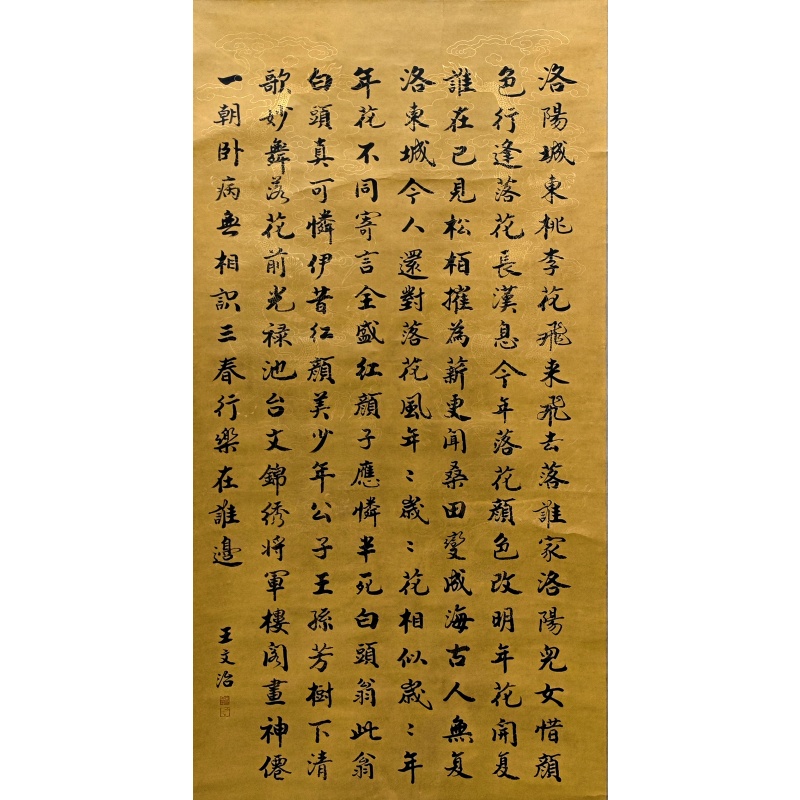 洛陽城東桃李花飛来飛去落誰家洛陽兒女惜顏
色行逢落花長漢息今年落花顏色改明年花開复
誰在已見松栢摧為薪更聞桑田變成海古人無复
洛東城今人還對落花風年〻歲〻花相似歲〻年
年花不同寄言全盛红顏子應憐半死白頭翁此翁
白頭真可憐伊昔红顏美少年公子王孫芳樹下清
歌妙舞落花前光禄池台文錦绣将軍樓阁畫神僊
一朝卧病無相识三春行樂在誰邊
王文治